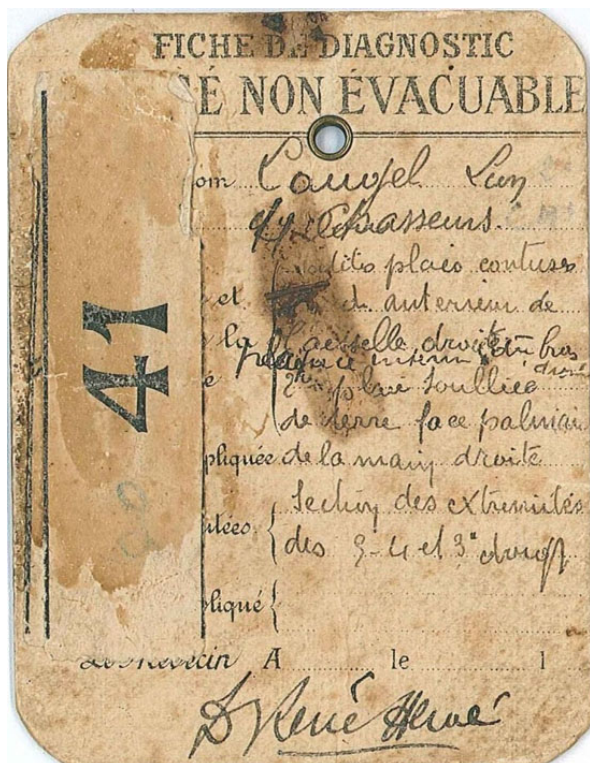 FICHE DE DIAGNOSTIC
SÉ NON ÉVACUABLE
om
Chasseurs.
petits plaies contuses
et d anterieur de
la l'aisselle droite
face interne du bras
droit
plaie souillée
de terre face palmair
pliquée de la main droite
41
itées { Section des extremités
des 5-4 et 3e doigt
pliqué {
Le Médecin A le 1
Dr René Hervé